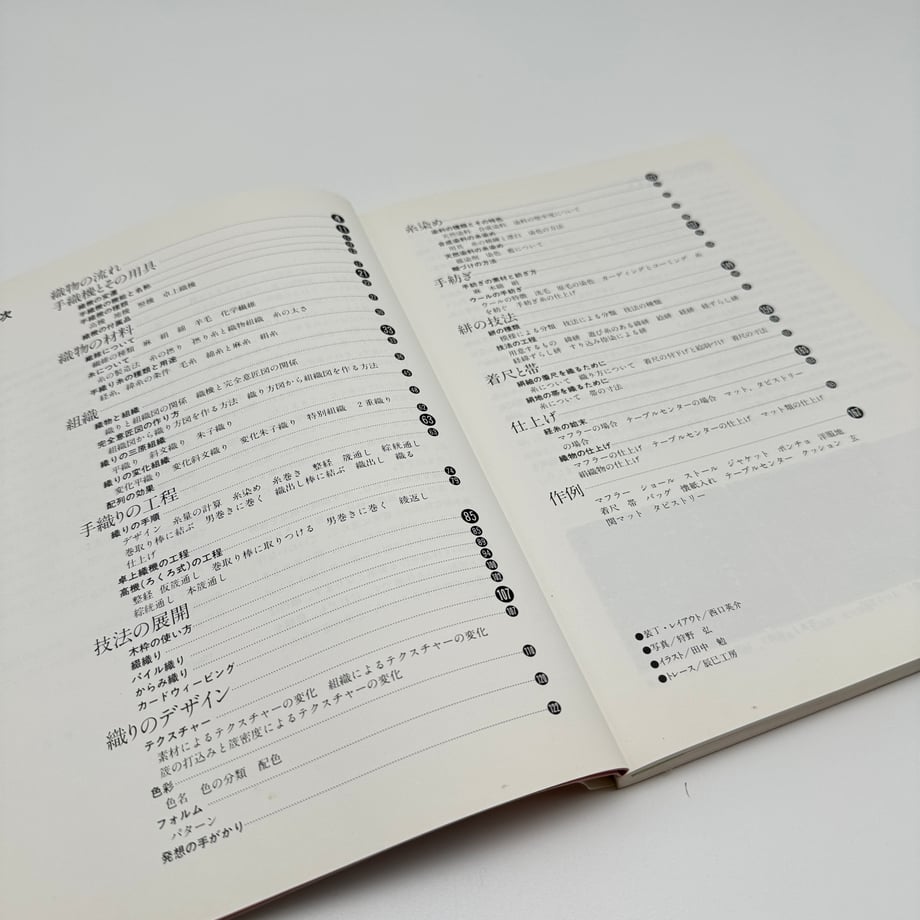 次
織物の流れ
手織機とその用具
織機の変遷
手織機の機能と名称
手織機の種類
高機 地機 竪機 卓上織機
織機の付属品
織物の材料
繊維について
繊維の種類 麻 絹 綿 羊毛 化学繊維
糸について
糸の製造法 糸の撚り 撚り糸と織物組織 糸の太さ
手織り糸の種類と用途
経糸、緯糸の条件 毛糸 綿糸と麻糸 絹糸
組織
織物と組織
織りと組織図の関係 織機と完全意匠図の関係
完全意匠図の作り方
組織図から織り方図を作る方法 織り方図から組織図を作る方法
織りの三原組織
平織り 斜文織り 朱子織り
織りの変化組織
変化平織り 変化斜文織り 変化朱子織り 特別組織 2重織り
配列の効果
手織りの工程
織りの手順
デザイン 糸量の計算 糸染め 糸巻き 整経 筬通し 綜絖通し
巻取り棒に結ぶ 男巻きに巻く 織出し棒に結ぶ 織出し 織る
仕上げ
卓上織機の工程
高機(ろくろ式)の工程
整経 仮筬通し 巻取り棒に取りつける 男巻きに巻く 綾返し
綜絖通し 本筬通し
技法の展開 85
木枠の使い方
綴織り
パイル織り 94
からみ織り 100
カードウィービング 103
織りのデザイン 107
テクスチャー 107
素材によるテクスチャーの変化 組織によるテクスチャーの変化
筬の打込みと筬密度によるテクスチャーの変化
色彩 118
色名 色の分類 配色
フォルム 120
パターン
発想の手がかり 122
糸染め
染料の種類とその特色
天然染料 合成染料 染料の堅牢度について
合成染料の糸染め
用具 糸の精練と漂白 染色の方法
天然染料の糸染め
媒染剤 染色 藍について
艶づけの方法
手紡ぎ
手紡ぎの素材と紡ぎ方
麻 木綿 絹
ウールの手紡ぎ
ウールの特徴 洗毛 原毛の染色 カーディングとコーミング 糸
を紡ぐ 手紡ぎ糸の仕上げ
絣の技法
絣の種類
模様による分類 技法による分類 技法の種類
技法の工程
用意するもの 緯絣 遊び糸のある緯絣 経絣 経緯絣 経ずらし絣
経緯ずらし絣 すり込み捺染による絣
着尺と帯
絹紬の着尺を織るために
糸について 織り方について 着尺の柄下げと絵羽づけ 着尺の寸法
絹地の帯を織るために
糸について 帯の寸法
仕上げ
経糸の始末
マフラーの場合 テーブルセンターの場合 マット、タピストリー
の場合
織物の仕上げ
マフラーの仕上げ テーブルセンターの仕上げ マット類の仕上げ
絹織物の仕上げ
作例 167
マフラー ショール ストール ジャケット ポンチョ 洋服地
着尺 帯 バッグ 懐紙入れ テーブルセンター クッション 玄
関マット タピストリー
●装丁・レイアウト/西口英介
●写真/狩野 弘
●イラスト/田中 勉
●トレース/辰巳工房